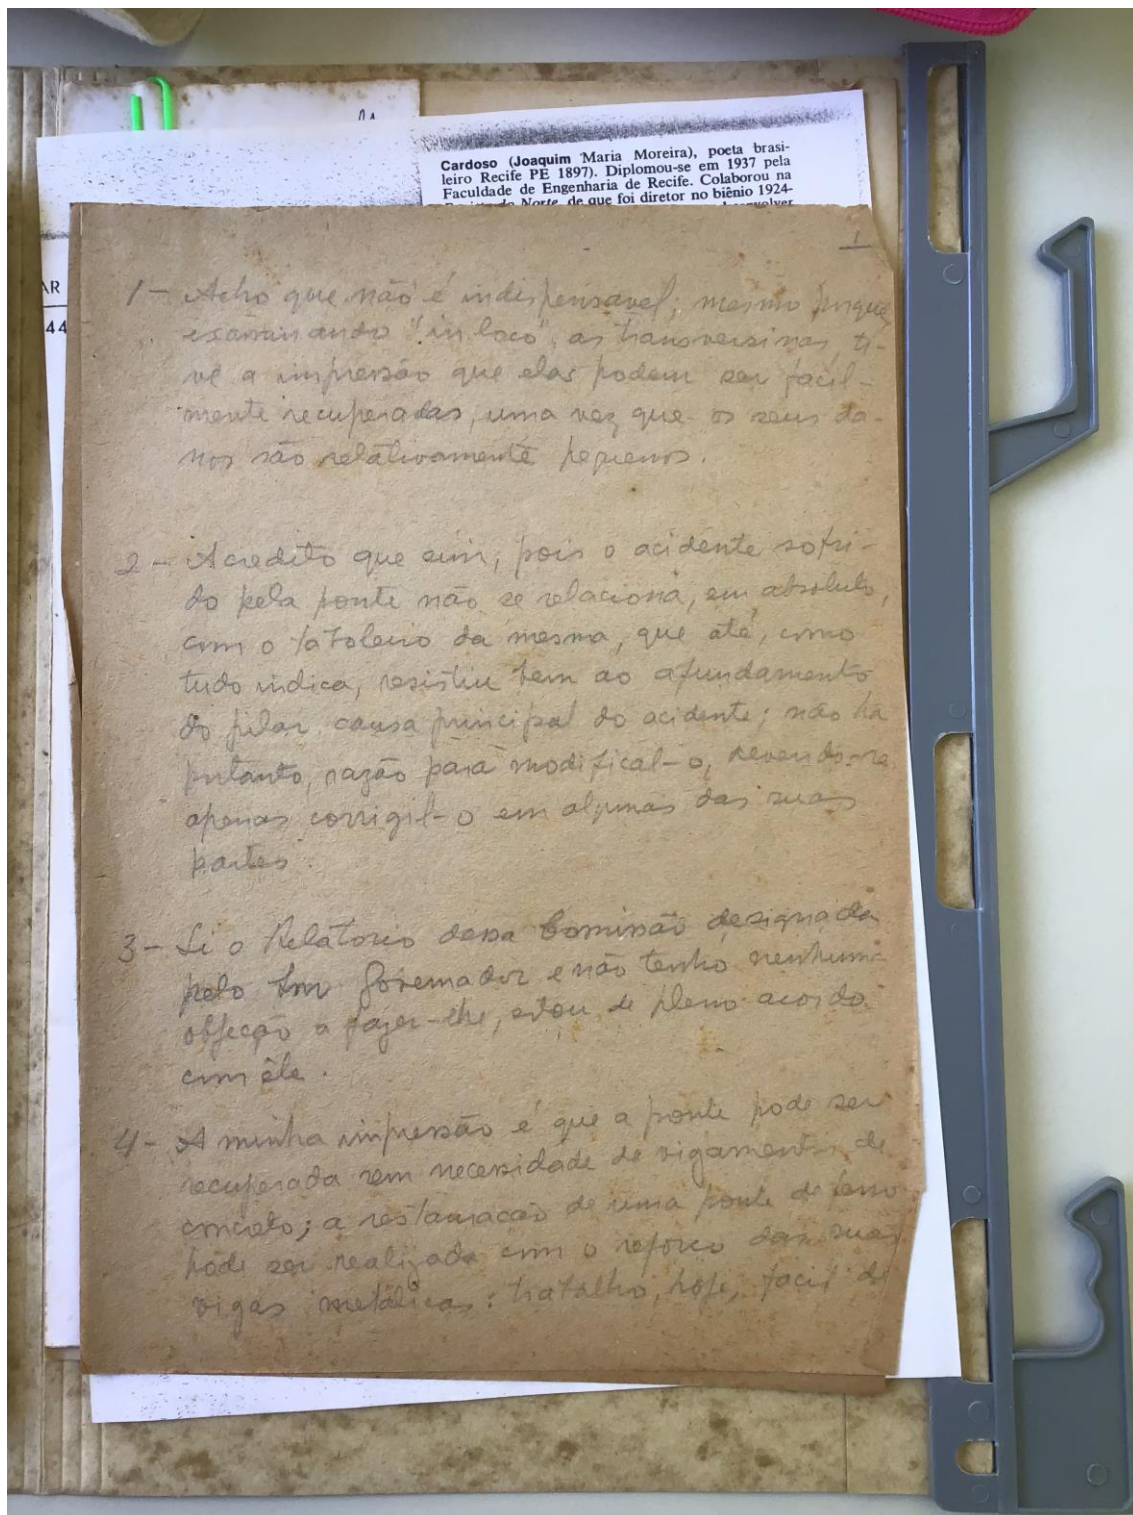 Cardoso (Joaquim Maria Moreira), poeta brasi-
leiro Recife PE 1897). Diplomou-se em 1937 pela
Faculdade de Engenharia de Recife. Colaborou na
do Norte, de que foi diretor no biênio 1924-
AR
44
1
1- Acho que não é indispensavel; mesmo porque,
examinando "in loco", as transversinas, ti-
ve a impressão que elas podem ser facil-
mente recuperadas, uma vez que os seus da-
nos são relativamente pequenos.
2- Acredito que sim, pois o acidente sofri-
do pela ponte não se relaciona, em absoluto,
com o taboleiro da mesma, que até, como
tudo indica, resistiu bem ao afundamento
do pilar, causa principal do acidente; não há
portanto, razão para modifical-o, devendo-se
apenas corrigil-o em algumas das suas
partes.
3- Li o Relatorio dessa Comissão designada
pelo Snr Governador e não tenho nenhuma
objeção a fazer-lhe, estou de pleno acordo
com êle.
4- A minha impressão é que a ponte pode ser
recuperada sem necessidade de vigamentos de
concreto; a restauração de uma ponte de ferro
pode ser realizada com o reforço das suas
vigas metálicas: trabalho, hoje, facil de